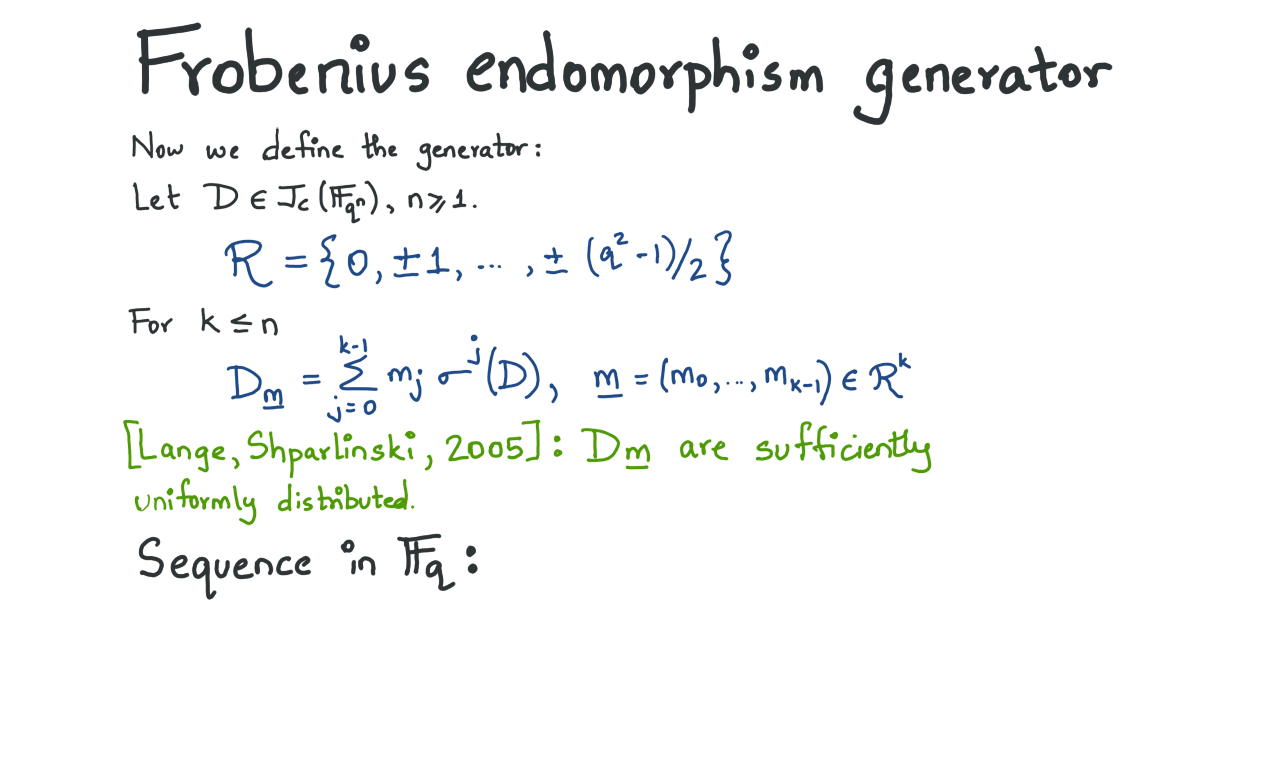 Frobenius endomorphism generator
Now we define the generator:
Let D ∈ J_C(𝔽_{qⁿ}), n ⩾ 1.
R = {0, ±1, ..., ± (q²-1)/2}
For k ≤ n
D_m̲ = ∑_{j=0}^{k-1} m_j σ^j(D), m̲ = (m₀, ..., m_{k-1}) ∈ R^k
[Lange, Shparlinski, 2005]: D_m̲ are sufficiently
uniformly distributed.
Sequence in 𝔽_q: